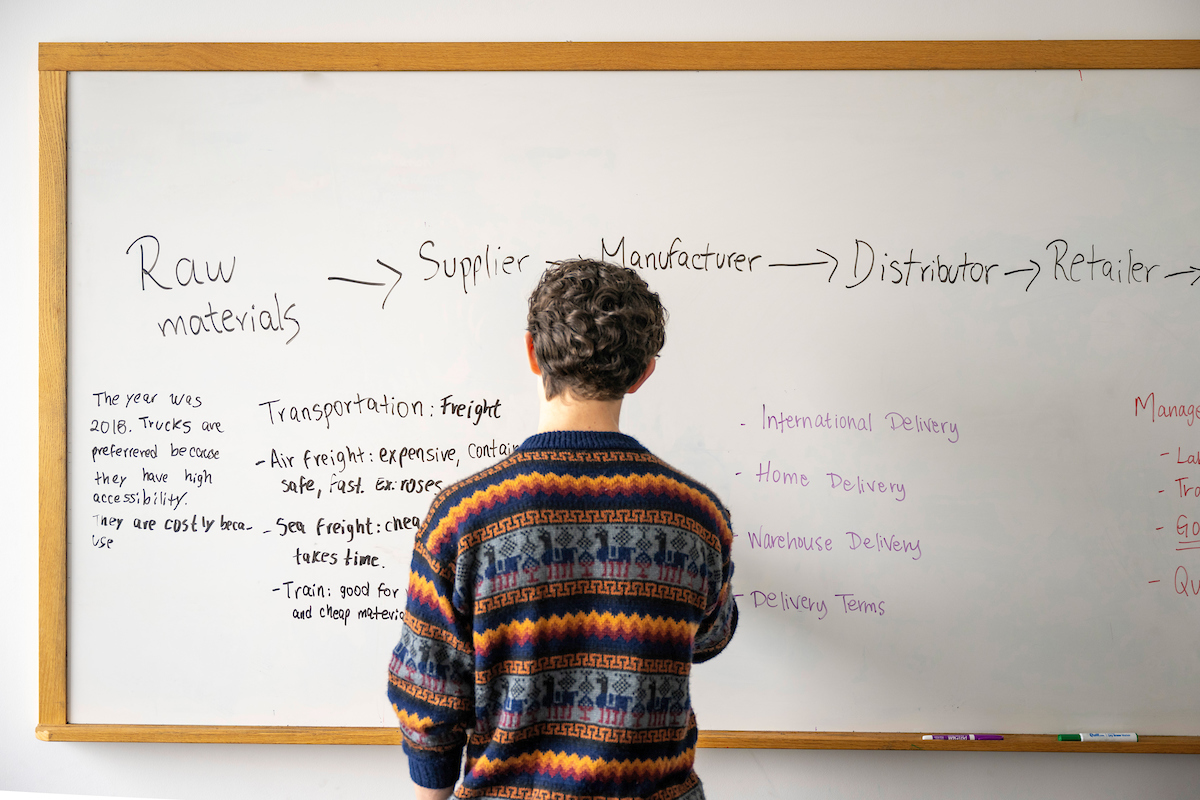 Raw → Supplier → Manufacturer → Distributor → Retailer →
materials
The year was
2018. Trucks are
preferrered because
they have high
accessibility.
They are costly beca-
use
Transportation: Freight
- Air freight: expensive,
safe, fast. Ex: roses
- Sea freight:
takes time.
- Train: good for
and cheap
- International Delivery
- Home Delivery
- Warehouse Delivery
- Delivery Terms